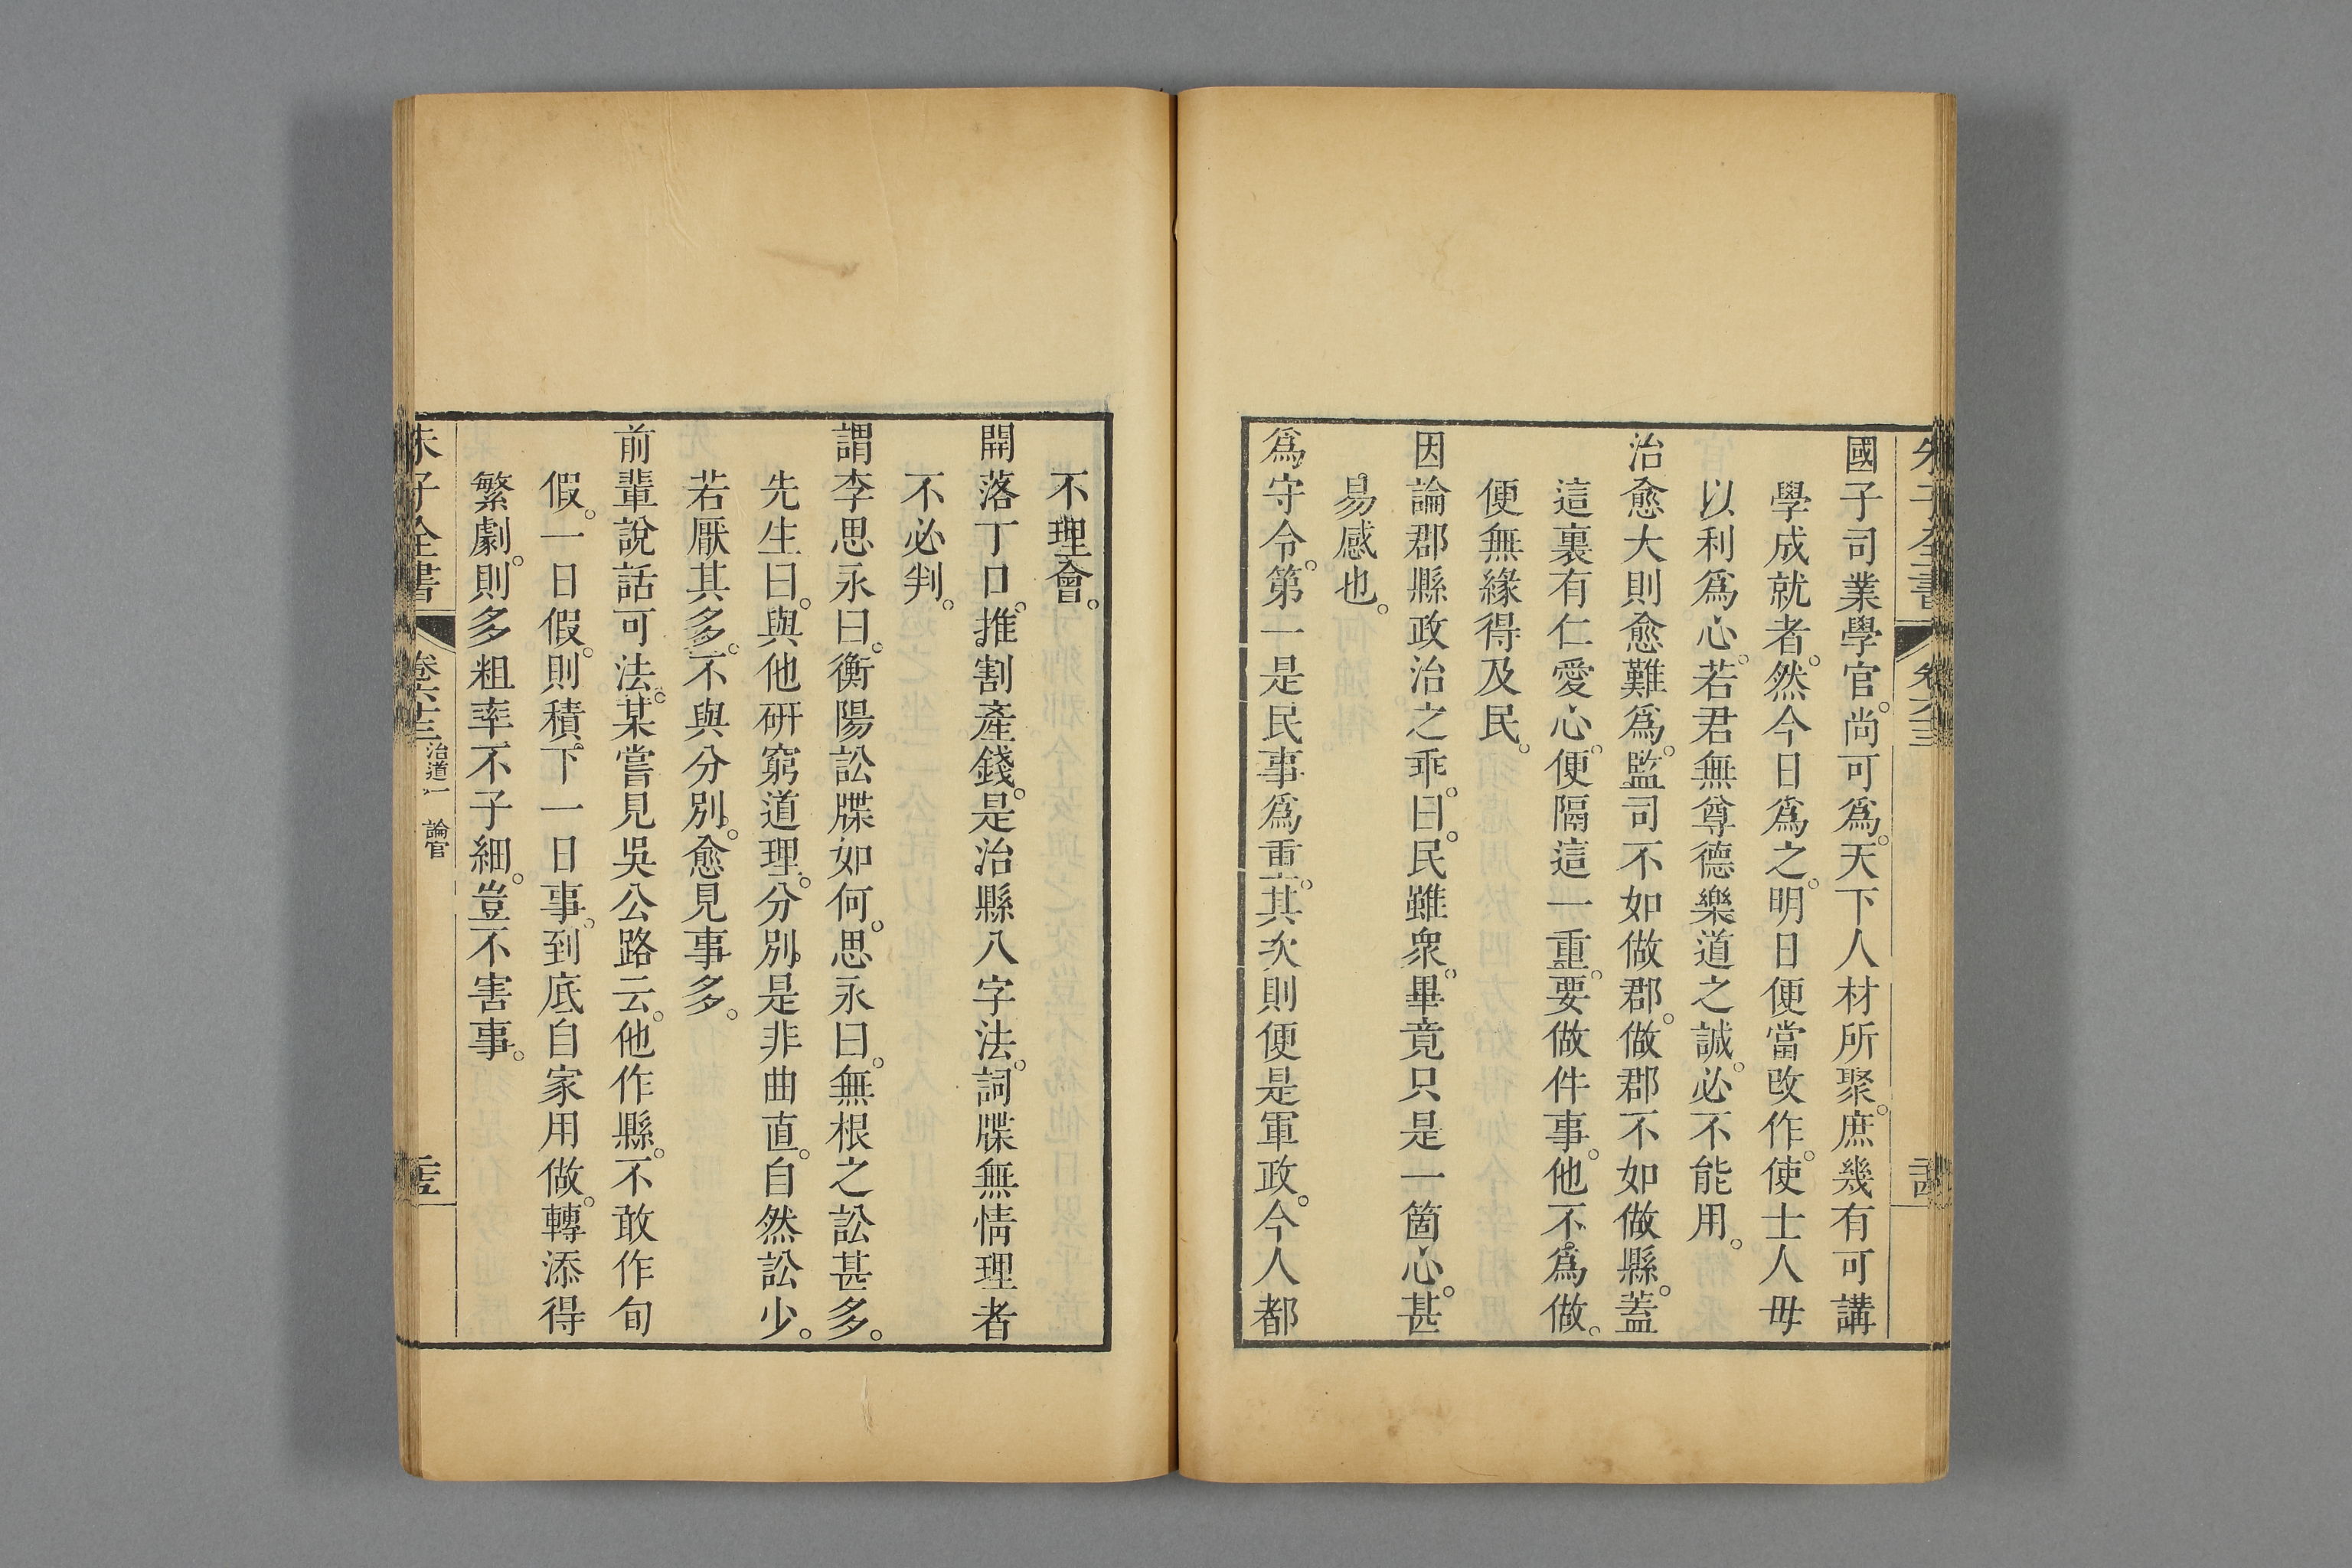 國子司業學官。尚可爲。天下人材所聚。庶幾有可講
學成就者。然今日爲之。明日便當改作。使士人毋
以利爲心。若君無尊德樂道之誠。必不能用。
治愈大則愈難爲。監司不如做郡。做郡不如做縣。蓋
這裏有仁愛心。便隔這一重。要做件事。他不爲做。
便無緣得及民。
因論郡縣政治之乖。曰。民雖衆。畢竟只是一箇心。甚
易感也。
爲守令。第一是民事爲重。其次則便是軍政。今人都
不理會。
開落丁口。推割產錢。是治縣八字法。詞牒無情理者
不必判。
謂李思永曰。衡陽訟牒如何。思永曰。無根之訟甚多。
先生曰。與他研窮道理。分別是非曲直。自然訟少。
若厭其多。不與分別。愈見事多。
前輩說話可法。某嘗見吳公路云。他作縣。不敢作旬
假。一日假。則積下一日事。到底自家用做。轉添得
繁劇。則多粗率不子細。豈不害事。
朱子全書
卷六十三
治道一 論官